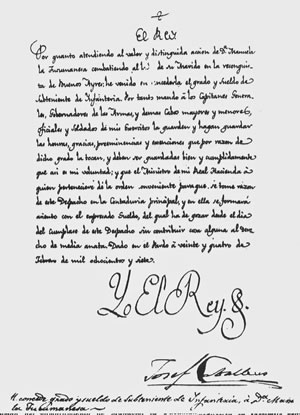 El Rey
Por quanto atendiendo al valor y distinguida accion de Dª Manuela
la Tucumanesa combatiendo al lado de su Marido en la reconquis
ta de Buenos Ayres; he venido en concederla el grado y sueldo de
Subteniente de Infanteria. Por tanto mando á los Capitanes Genera
les, Gobernadores de las Armas, y demas Cabos mayores y menores,
oficiales y Soldados de mis Exercitos la guarden y hagan guardar
las honras, gracias, preeminencias y exenciones que por razon de
dicho grado la tocan, y deben ser guardadas bien y cumplidamente
que asi es mi voluntad; y que el Ministro de mi Real Hacienda á
quien perteneciere dé la orden conveniente para que se tome razon
de este Despacho en la Contaduria principal, y en ella se formará
asiento con el expresado Sueldo, del qual ha de gozar desde el dia
del cumplase de este Despacho sin contribuir con alguna al dere
cho de media anata. Dado en el Pardo á veinte y quatro de
Febrero de mil ochocientos y siete.
Yo El Rey.
Josef Caballero
V. M. concede grado y sueldo de Subteniente de Infanteria, á Dña Manue
la Tucumanesa.